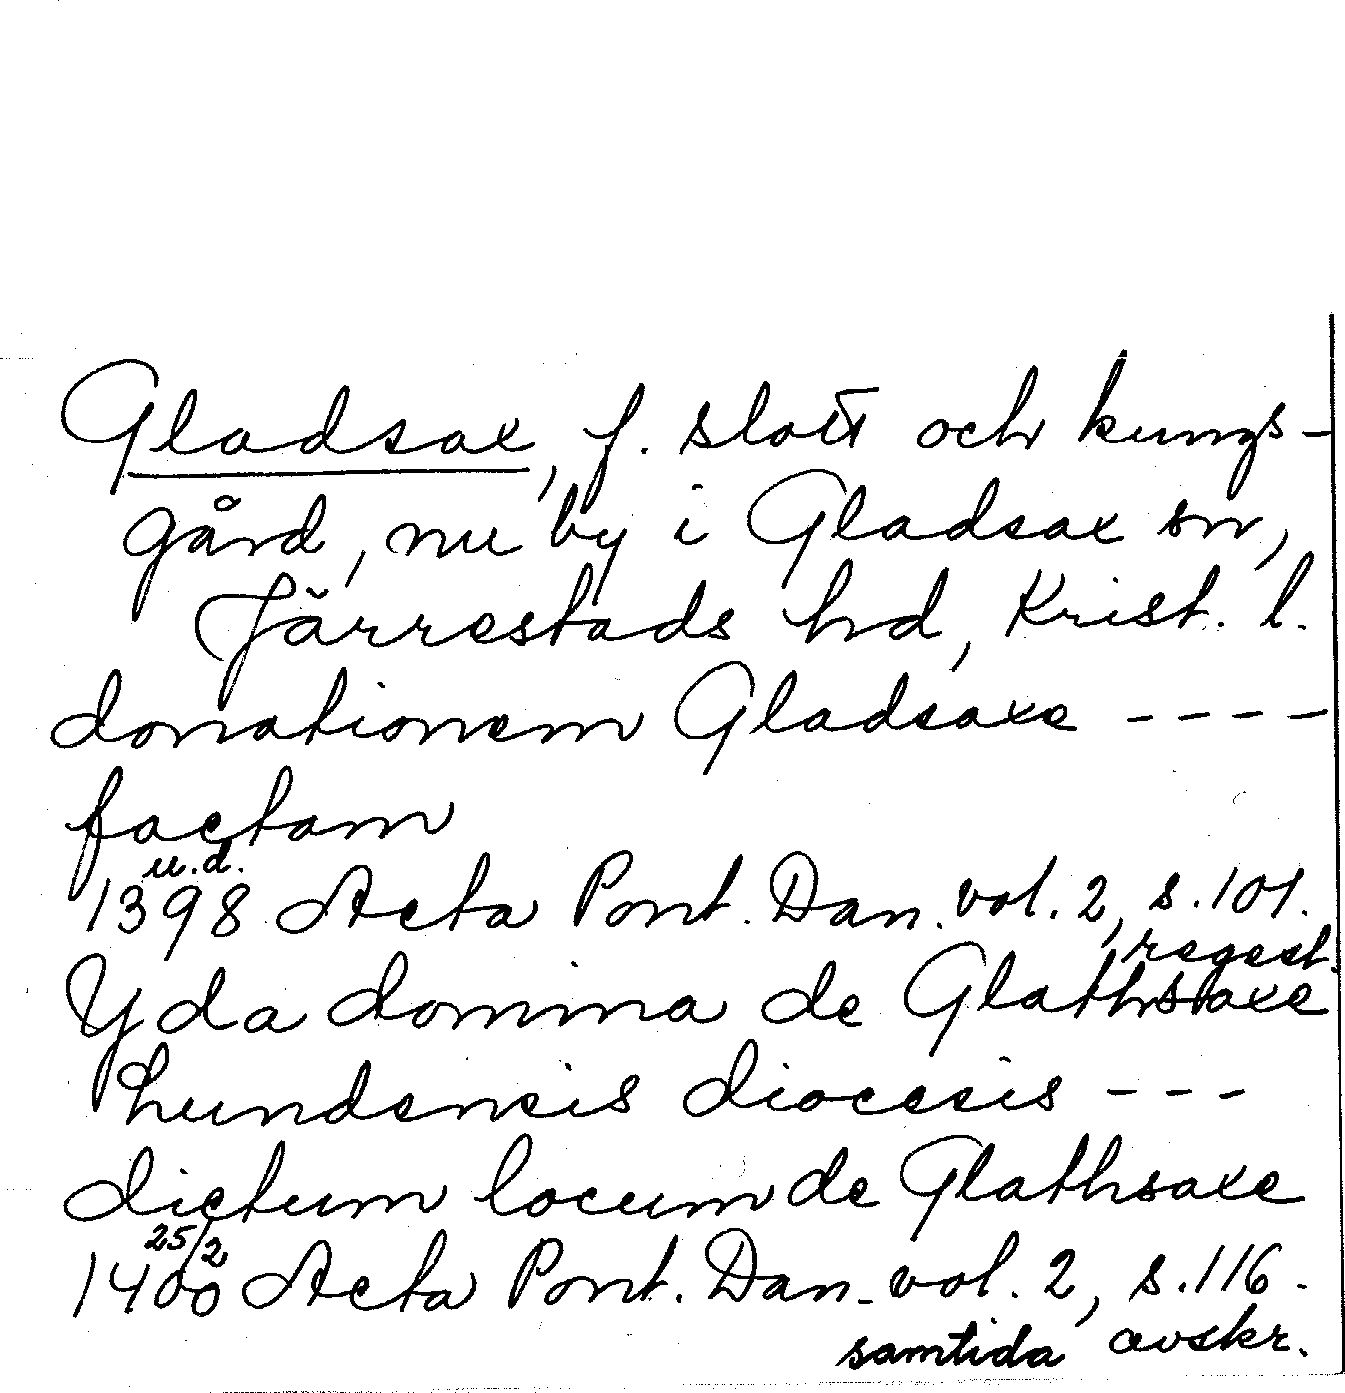 Gladsax, f. slott och kungs-
gård, nu by i Gladsax sn,
Järrestads hd, Krist. l.
donationem Gladsaxe ----
factam
u.d.
1398 Acta Pont. Dan. vol. 2, s. 101.
regest.
Yda domina de Glathsaxe
Lundensis diocesis ---
dictum locum de Glathsaxe
25/2
1400 Acta Pont. Dan. vol. 2, s. 116.
samtida avskr.